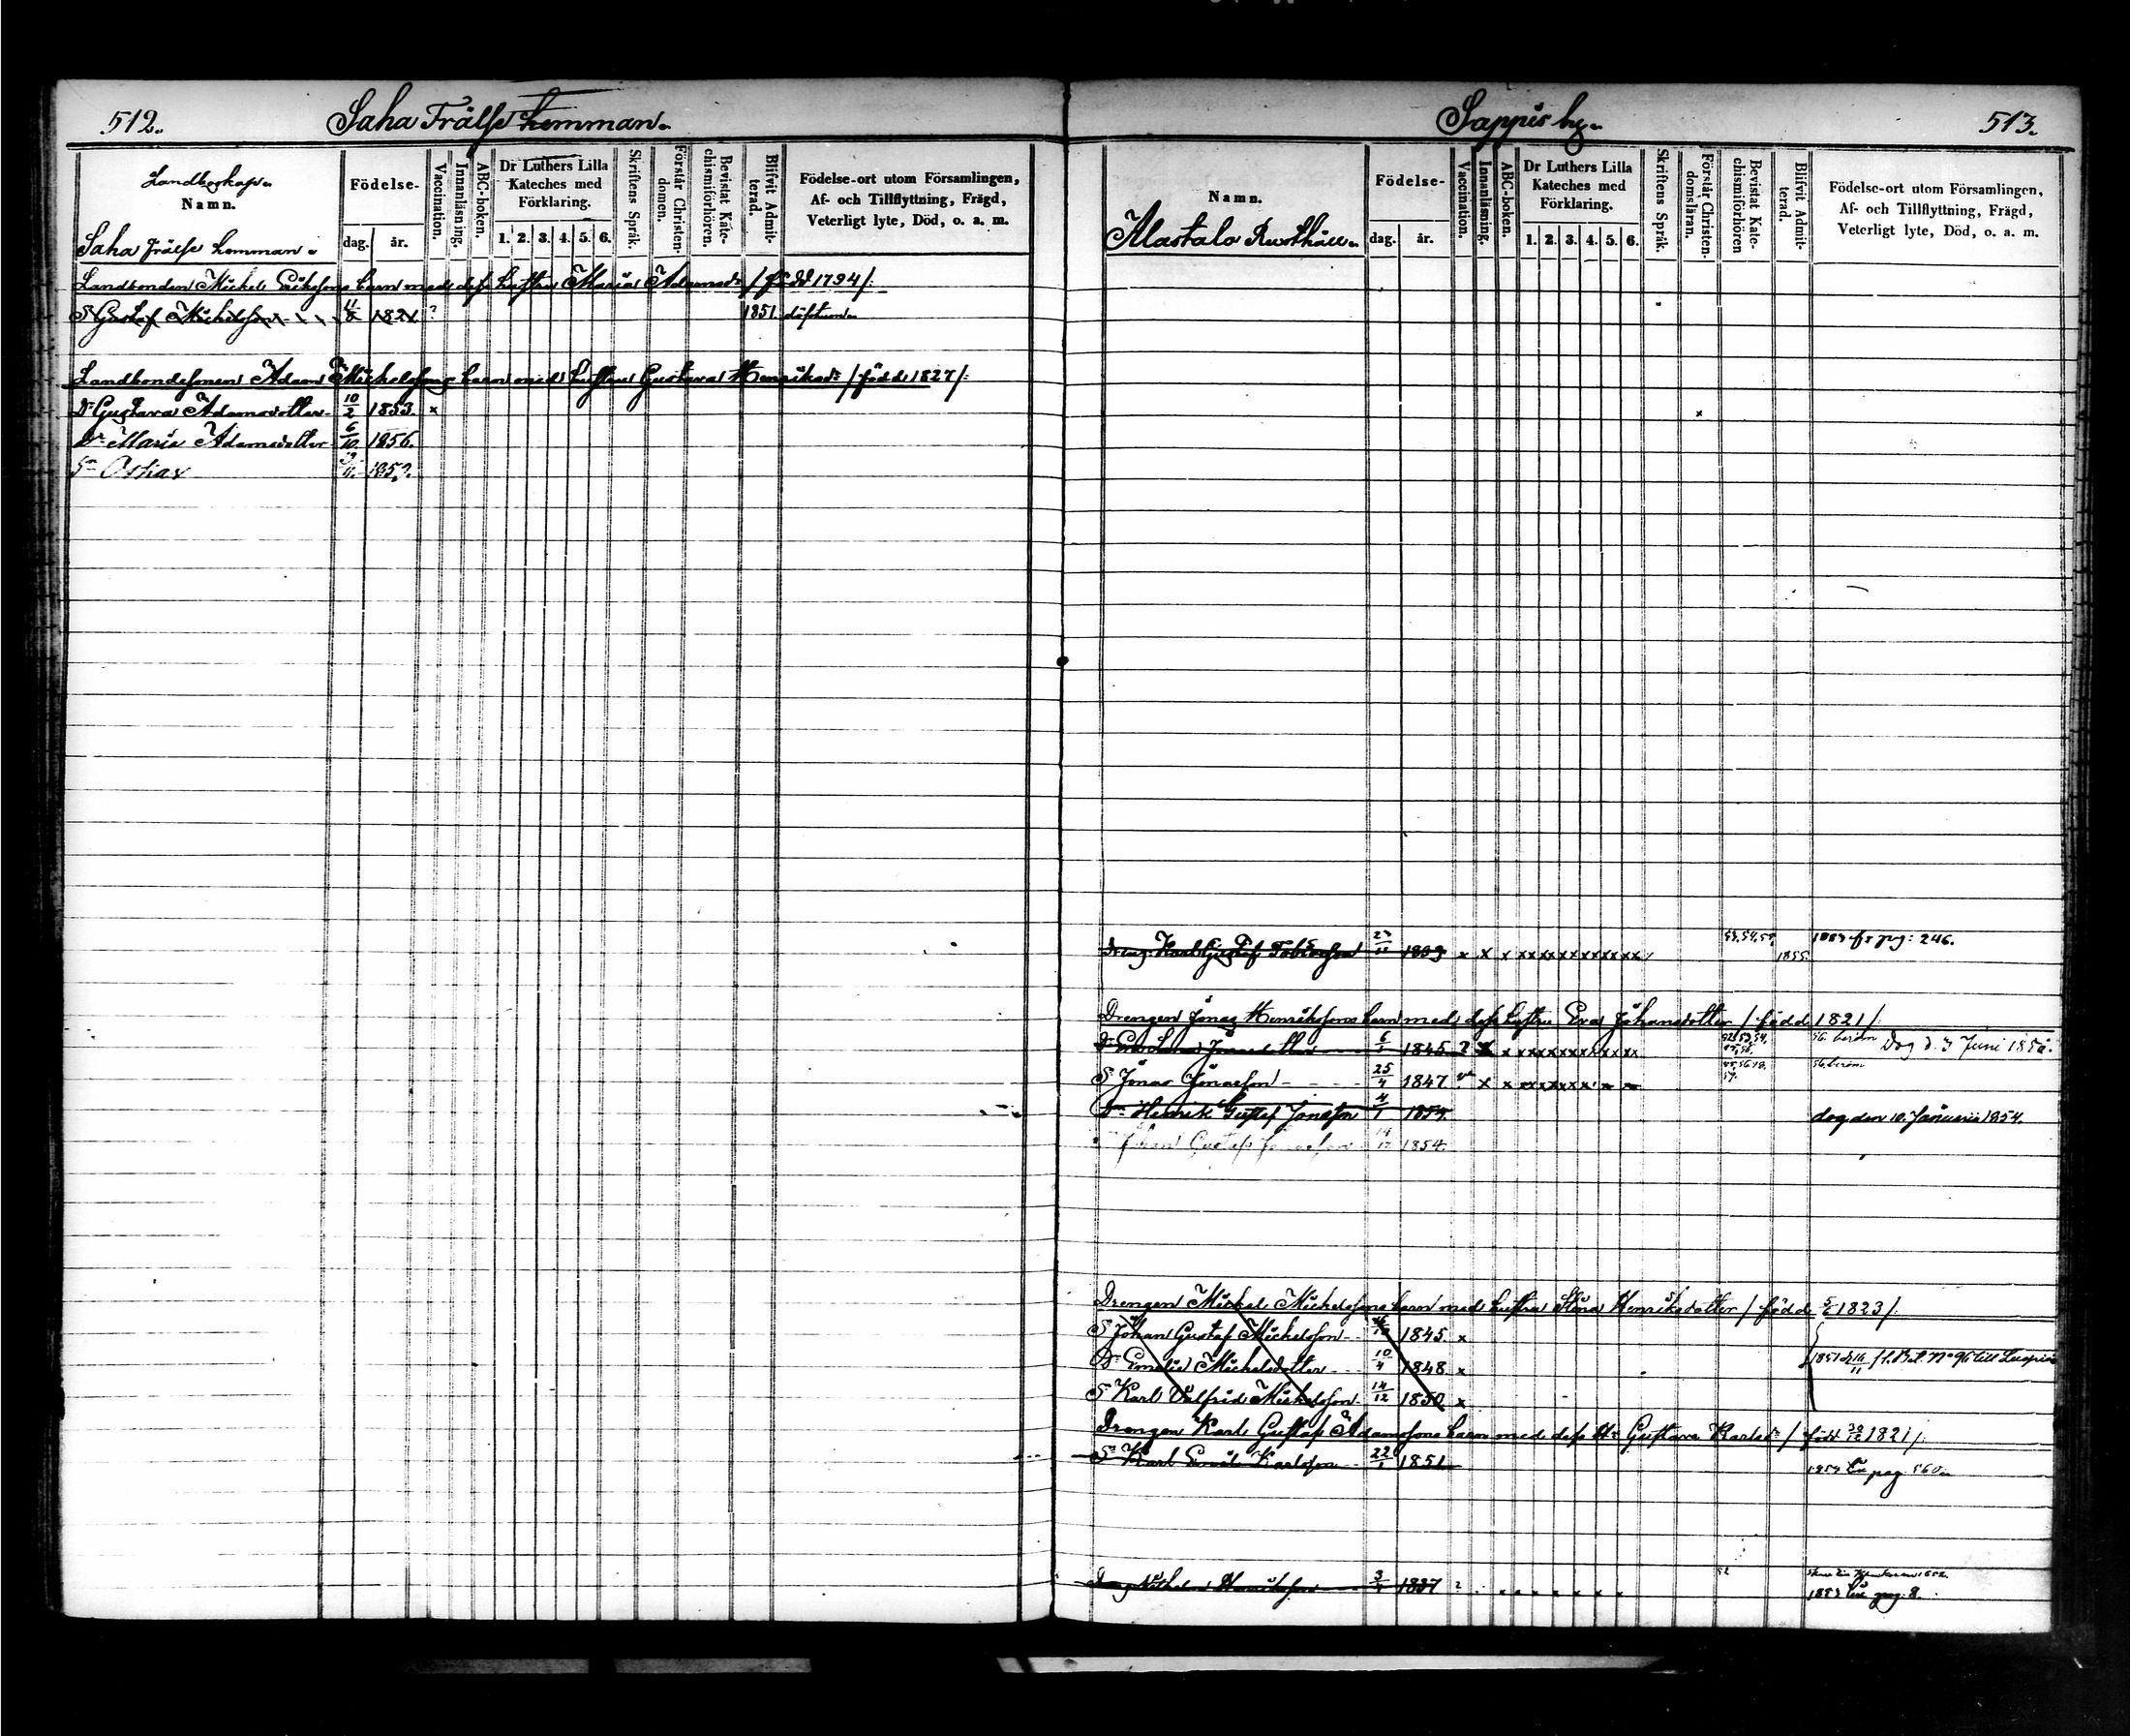 512.
Saha Frälse hemman.
Landboskap.
Namn.
Födelse-
dag. år.
Vaccination.
Innanläsning.
ABC-boken.
Dr Luthers Lilla
Kateches med
Förklaring.
1. 2. 3. 4. 5. 6.
Skriftens Språk.
Förstår Christen-
domen.
Bevistat Kate-
chismiförhören.
Blifvit Admit-
terad.
Födelse-ort utom Församlingen,
Af- och Tillflyttning, Frägd,
Veterligt lyte, Död, o. a. m.
Saha frälse hemman.
Landbonden Michel Erikssons barn med dess hustru Maria Adamsdr /: född 1794 /:
S. Gustaf Michelsson 11/8 1821 ? 1851
Landbondesonen Adam Michelssons barn med hustrun Gustava Henriksdr /: född 1827 /:
Dr Gustava Adamsdotter 10/2 1853. x
Dr Maria Adamsdotter 6/10 1856.
Sn Oskar
513.
Sappis by.
Namn.
Alastalo Rusthåll.
Födelse-
dag. år.
Vaccination.
Innanläsning.
ABC-boken.
Dr Luthers Lilla
Kateches med
Förklaring.
1. 2. 3. 4. 5. 6.
Skriftens Språk.
Förstår Christen-
domsläran.
Bevistat Kate-
chismiförhören
Blifvit Admit-
terad.
Födelse-ort utom Församlingen,
Af- och Tillflyttning, Frägd,
Veterligt lyte, Död, o. a. m.
Dreng. Karl Gustaf 1839 x x x xx xx xx xx xx xx 53.54.55. 1855. pag: 246.
Drengen Jonas Henrikssons barn med dess hustru Eva Johansdotter /: född 1821 /:
Jonasdotter 1845 ? x x Dog d. 3 Juni
S. Jonas Jonasson 25/4 1847 x x
Henrik Gustaf Jonasson 4/1 1854 dog den 10 Januarii 1854.
Johan Gustaf Jonasson 1854.
Drengen Michel Michelssons barn med hustru Henriksdotter /: född 5/6 1823 /:
S. Johan Gustaf Michelsson 1845. x
Dr Emelie Michelsdotter 10/4 1848. x 1851 d. 16/11 No 96 till
S. Karl Valfrid Michelsson 14/12 1850 x
Drengen Karl Gustaf Adamssons barn med dess Hu Gustava Karlsdr /: född 1821 /:
Sn Karl Emil Karlsson 22/1 1851 pag. 560.
1837 ? 52
1853 pag. 8.